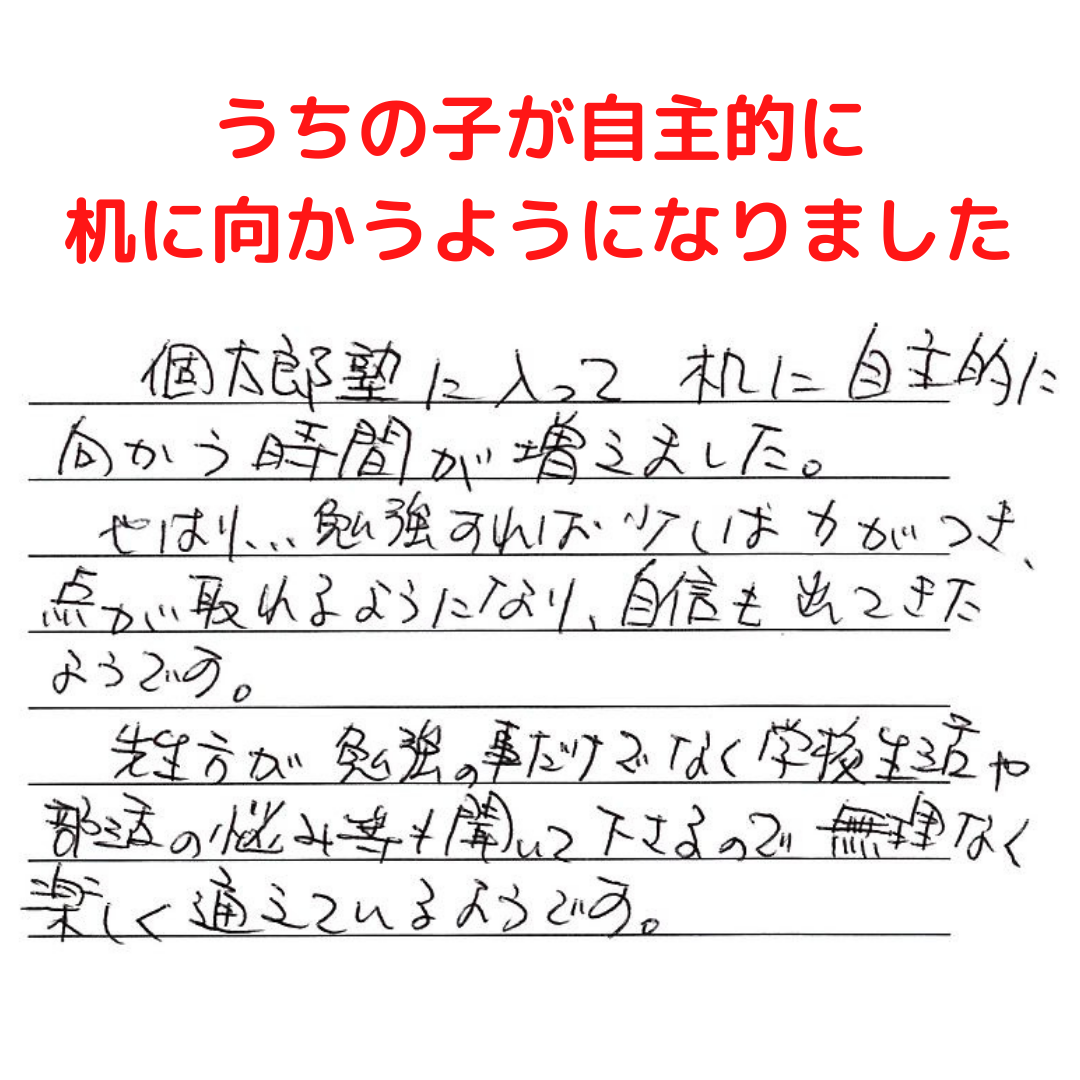 うちの子が自主的に
机に向かうようになりました
個太郎塾に入って 机に自主的に
向かう時間が増えました。
やはり...勉強すれば少しは力がつき、
点が取れるようになり、自信も出てきた
ようです。
先生方が勉強の事だけでなく学校生活や
部活の悩み等も聞いて下さるので無理なく
楽しく通えているようです。